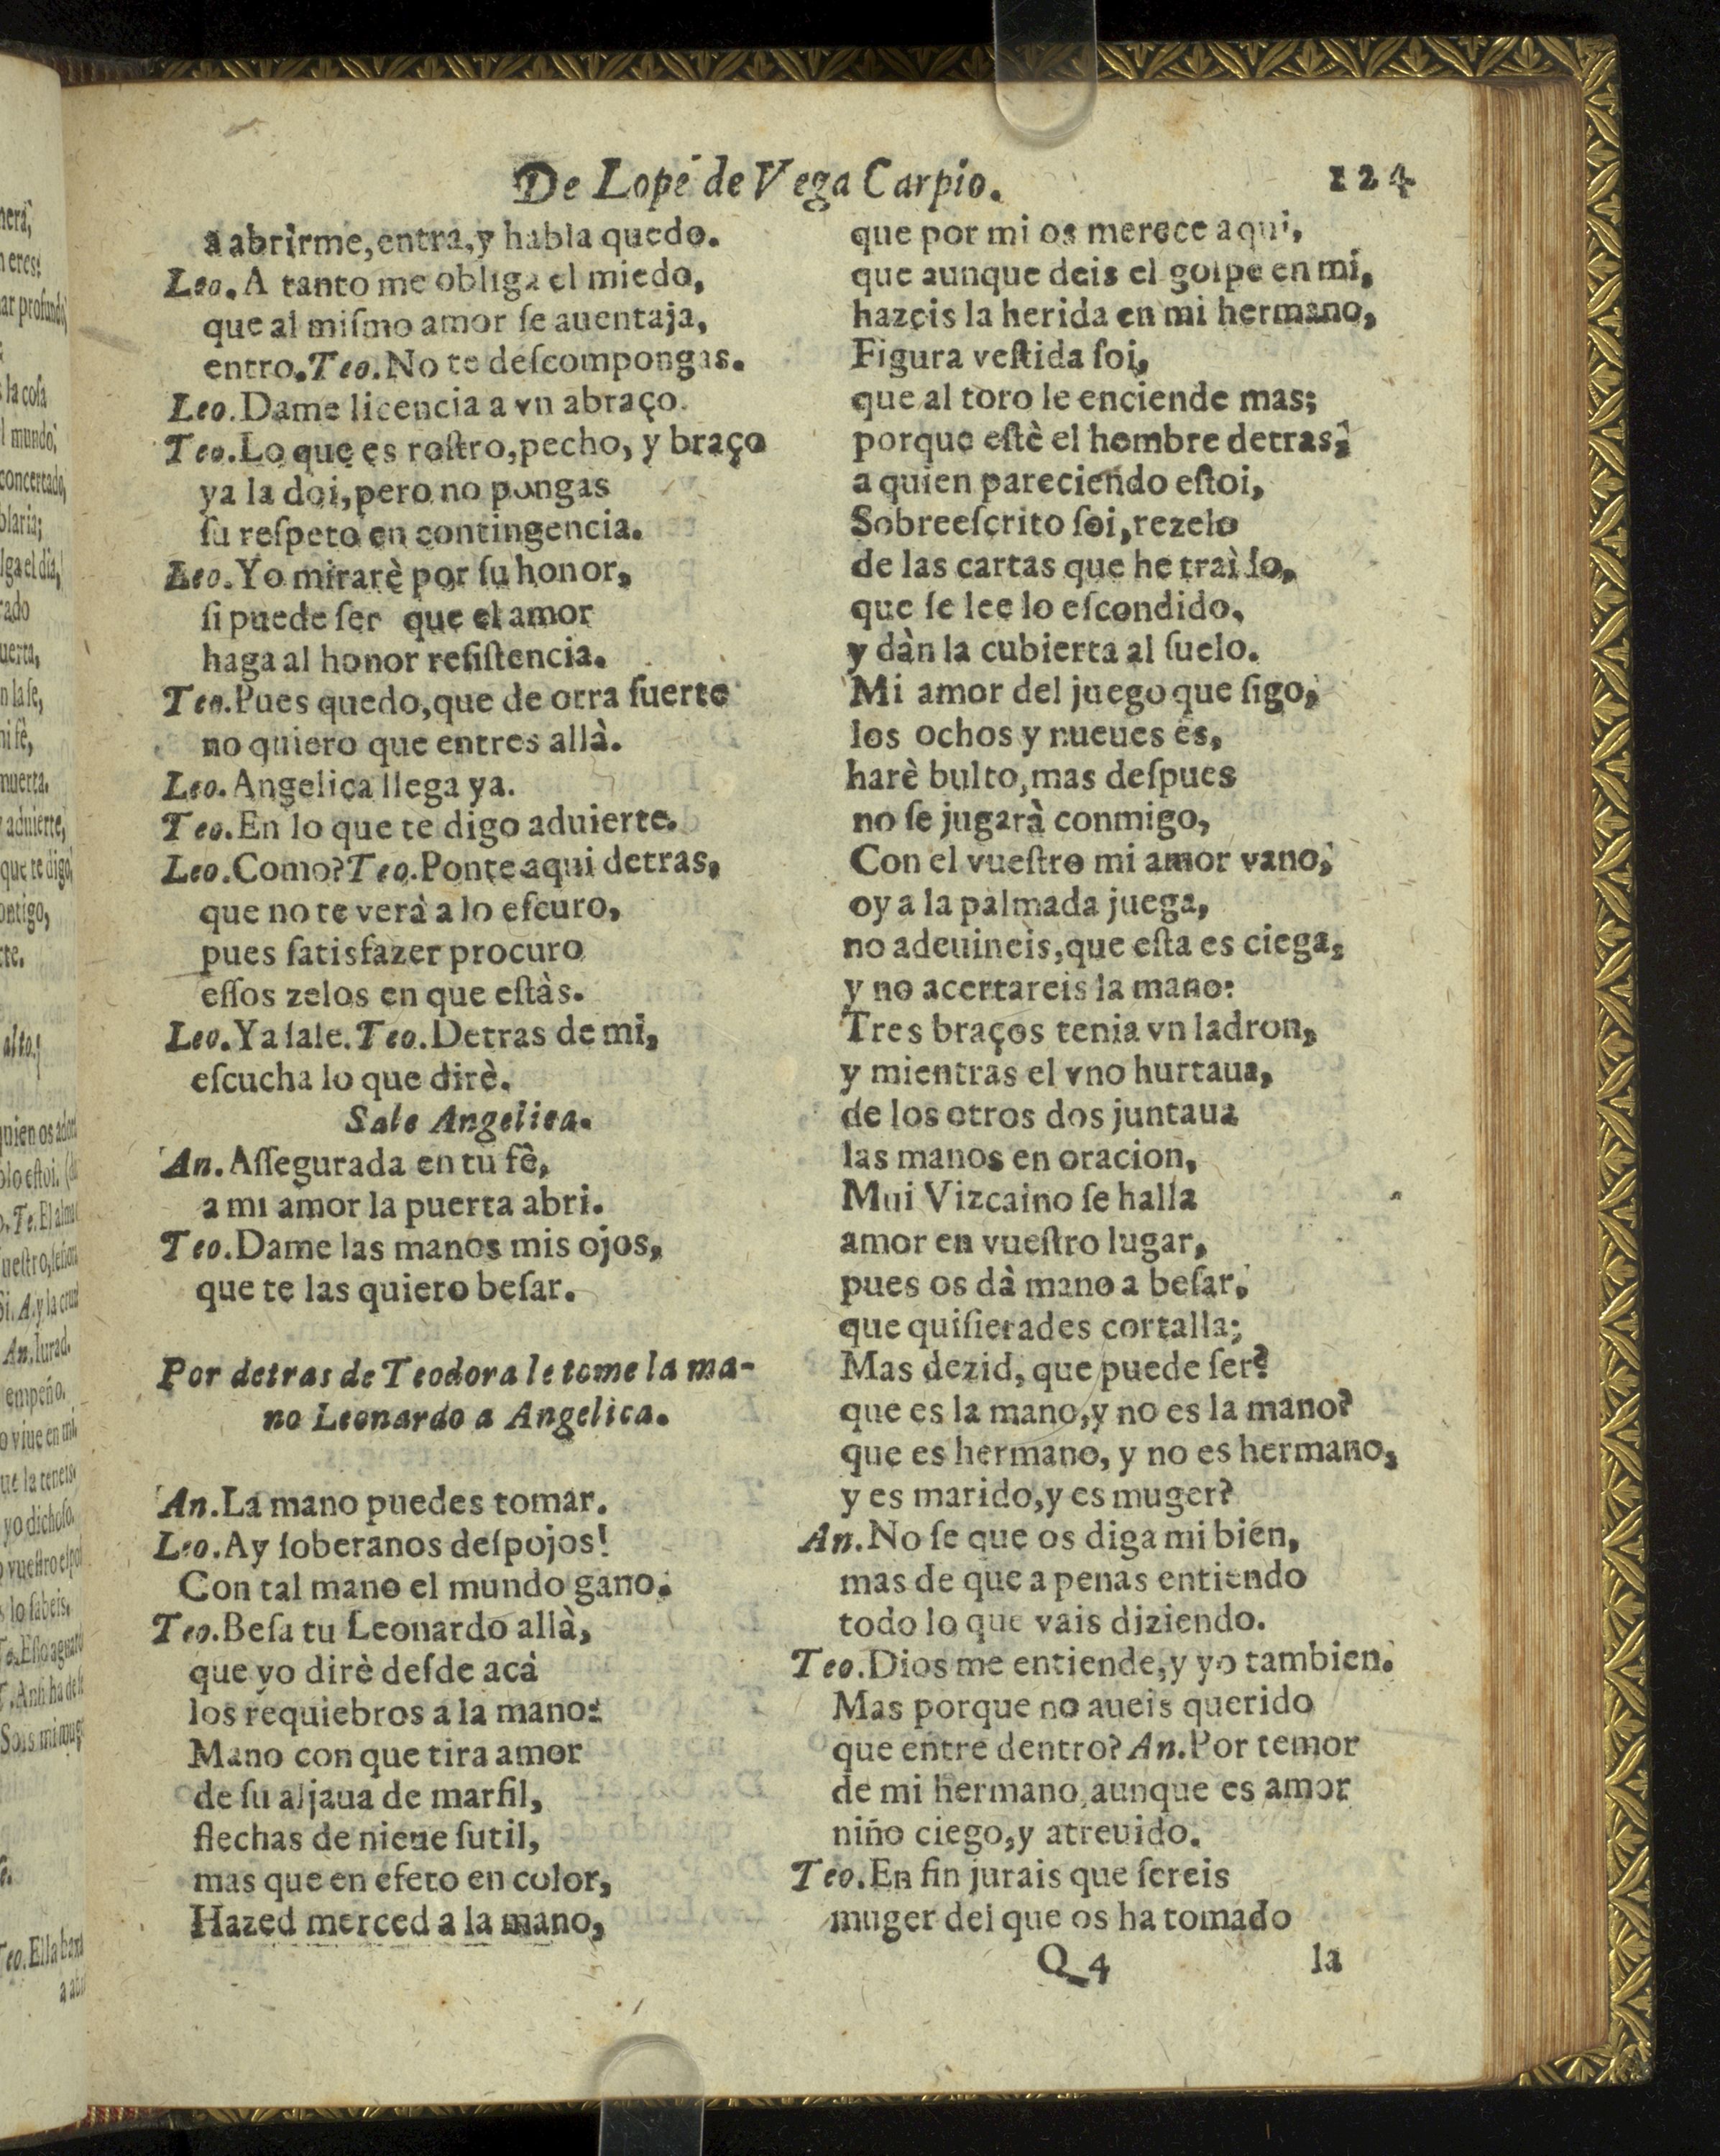 De Lope de Vega Carpio.
124
a abrirme, entra, y habla quedo.
Leo. A tanto me obliga el miedo,
que al miſmo amor ſe auentaja,
entro. Teo. No te deſcompongas.
Leo. Dame licencia a vn abraço.
Teo. Lo que es roſtro, pecho, y braço
ya la doi, pero no pongas
ſu reſpeto en contingencia.
Leo. Yo mirarè por ſu honor,
ſi puede ſer que el amor
haga al honor reſiſtencia.
Teo. Pues quedo, que de otra ſuerte
no quiero que entres allà.
Leo. Angelica llega ya.
Teo. En lo que te digo aduierte.
Leo. Como? Teo. Ponte aqui detras,
que no te verà a lo eſcuro,
pues ſatisfazer procuro
eſſos zelos en que eſtàs.
Leo. Ya ſale. Teo. Detras de mi,
eſcucha lo que dirè.
Sale Angelica.
An. Aſſegurada en tu fè,
a mi amor la puerta abri.
Teo. Dame las manos mis ojos,
que te las quiero beſar.
Por detras de Teodora le tome la ma-
no Leonardo a Angelica.
An. La mano puedes tomar.
Leo. Ay ſoberanos deſpojos!
Con tal mano el mundo gano.
Teo. Beſa tu Leonardo allà,
que yo dirè deſde acà
los requiebros a la mano:
Mano con que tira amor
de ſu aljaua de marfil,
flechas de nieue ſutil,
mas que en efeto en color,
Hazed merced a la mano,
que por mi os merece aqui,
que aunque deis el golpe en mi,
hazeis la herida en mi hermano,
Figura veſtida ſoi,
que al toro le enciende mas;
porque eſtè el hombre detras,
a quien pareciendo eſtoi,
Sobreeſcrito ſoi, rezelo
de las cartas que he traìdo,
que ſe lee lo eſcondido,
y dàn la cubierta al ſuelo.
Mi amor del juego que ſigo,
los ochos y nueues es,
harè bulto, mas deſpues
no ſe jugarà conmigo,
Con el vueſtro mi amor vano,
oy a la palmada juega,
no adeuineis, que eſta es ciega,
y no acertareis la mano:
Tres braços tenia vn ladron,
y mientras el vno hurtaua,
de los otros dos juntaua
las manos en oracion,
Mui Vizcaino ſe halla
amor en vueſtro lugar,
pues os dà mano a beſar,
que quiſierades cortalla;
Mas dezid, que puede ſer?
que es la mano, y no es la mano?
que es hermano, y no es hermano,
y es marido, y es muger?
An. No ſe que os diga mi bien,
mas de que a penas entiendo
todo lo que vais diziendo.
Teo. Dios me entiende, y yo tambien.
Mas porque no aueis querido
que entre dentro? An. Por temor
de mi hermano, aunque es amor
niño ciego, y atreuido.
Teo. En fin jurais que ſereis
muger del que os ha tomado
Q 4
la